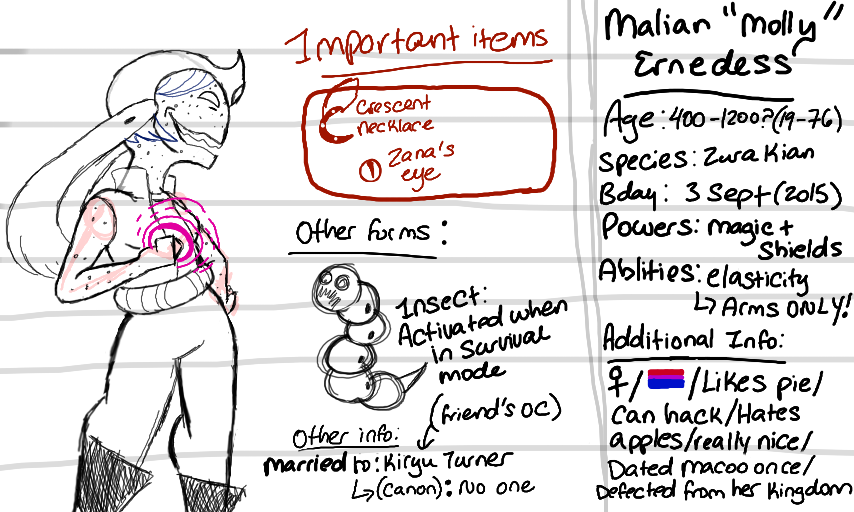 Important items
Crescent
necklace
Zana's
eye
Other forms:
Insect:
Activated when
in Survival
mode
(friend's OC)
Other info:
married to: Kiryu Turner
↳(Canon): No one
Malian "Molly"
Ernedess
Age: 400-1200?(19-76)
Species: Zurakian
Bday: 3 Sept (2015)
Powers: magic +
Shields
Ablities: elasticity
↳ Arms ONLY!
Additional Info:
♀/ /Likes pie/
Can hack/Hates
apples/really nice/
Dated macoo once/
Defected from her Kingdom